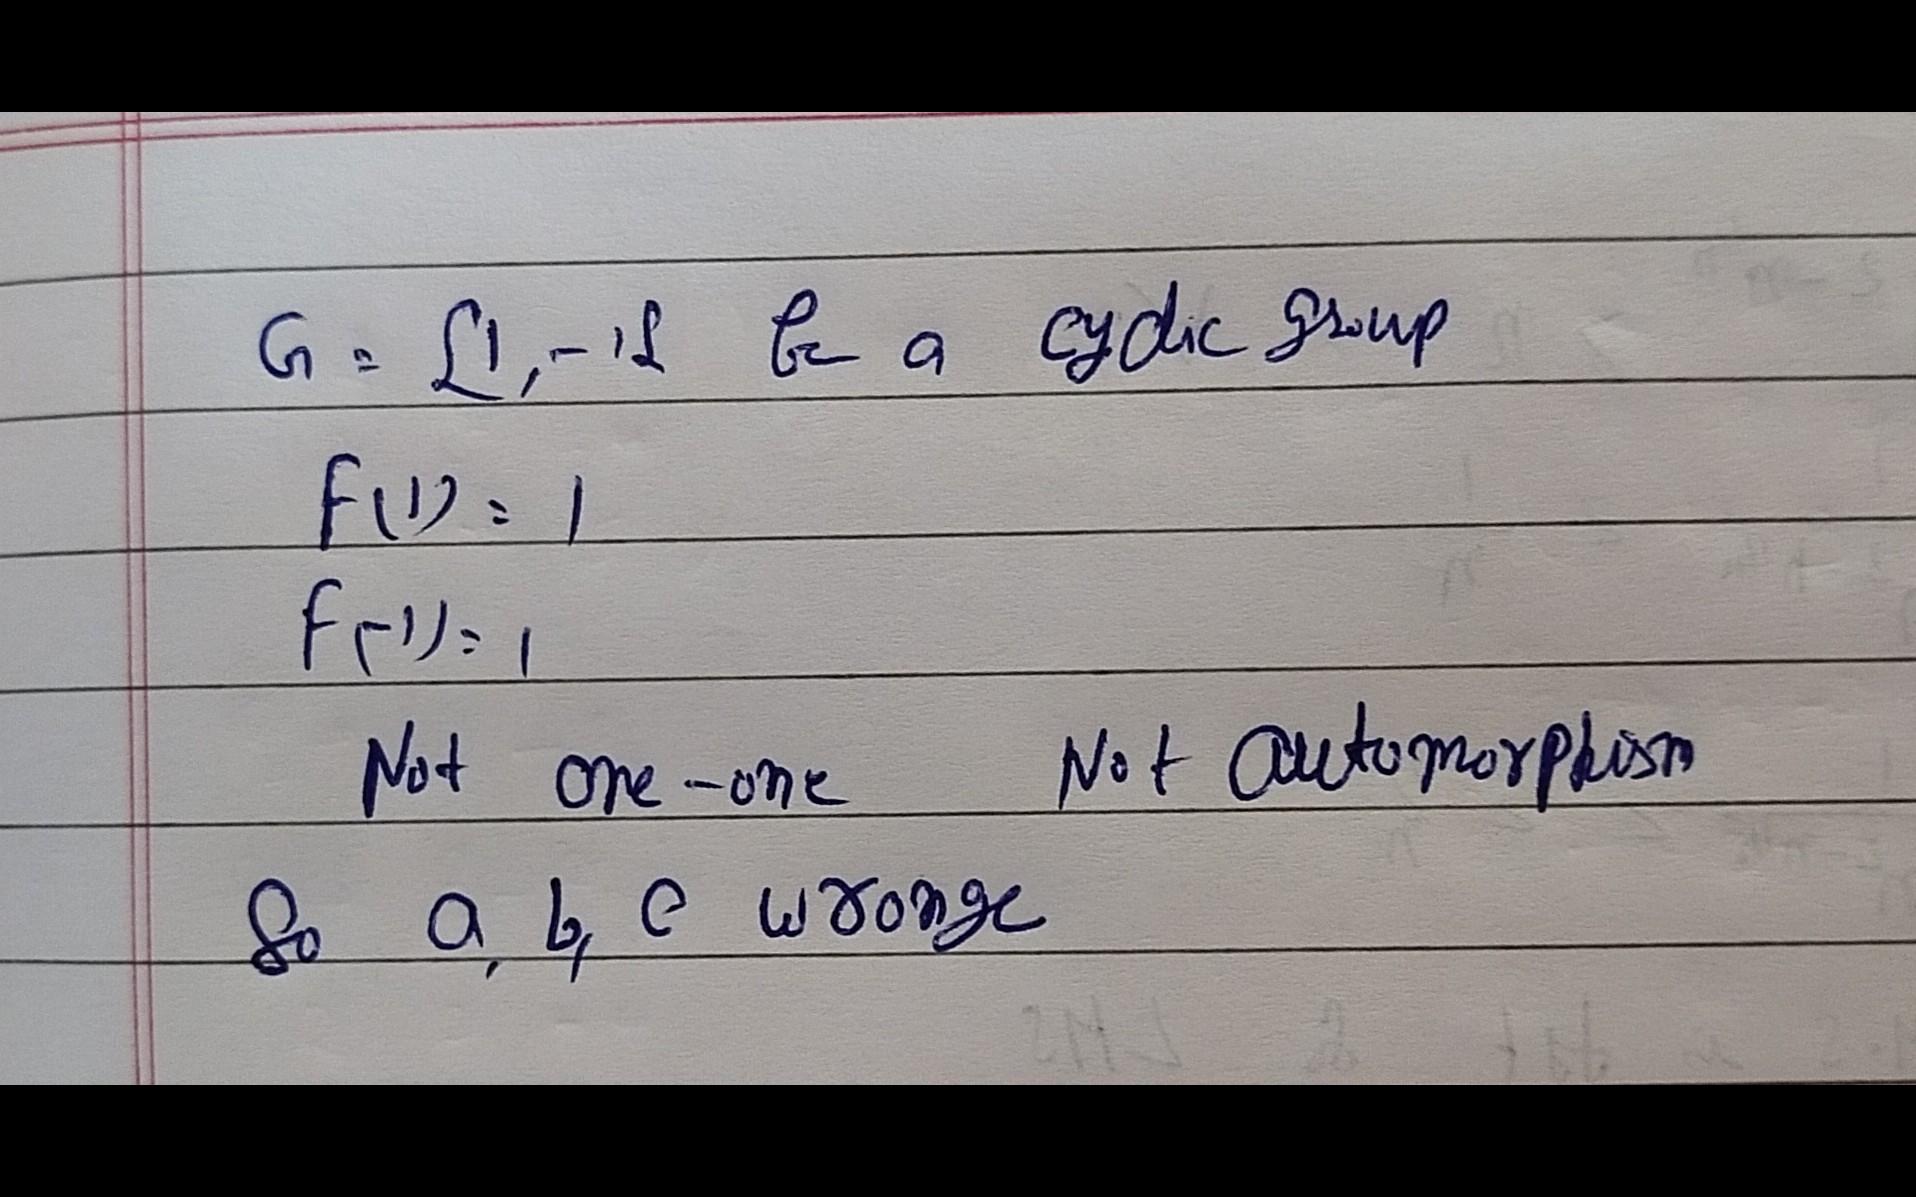 G = {1, -1} be a cyclic group
f(1) = 1
f(-1) = 1
Not one-one Not automorphism
So a, b, c wronge